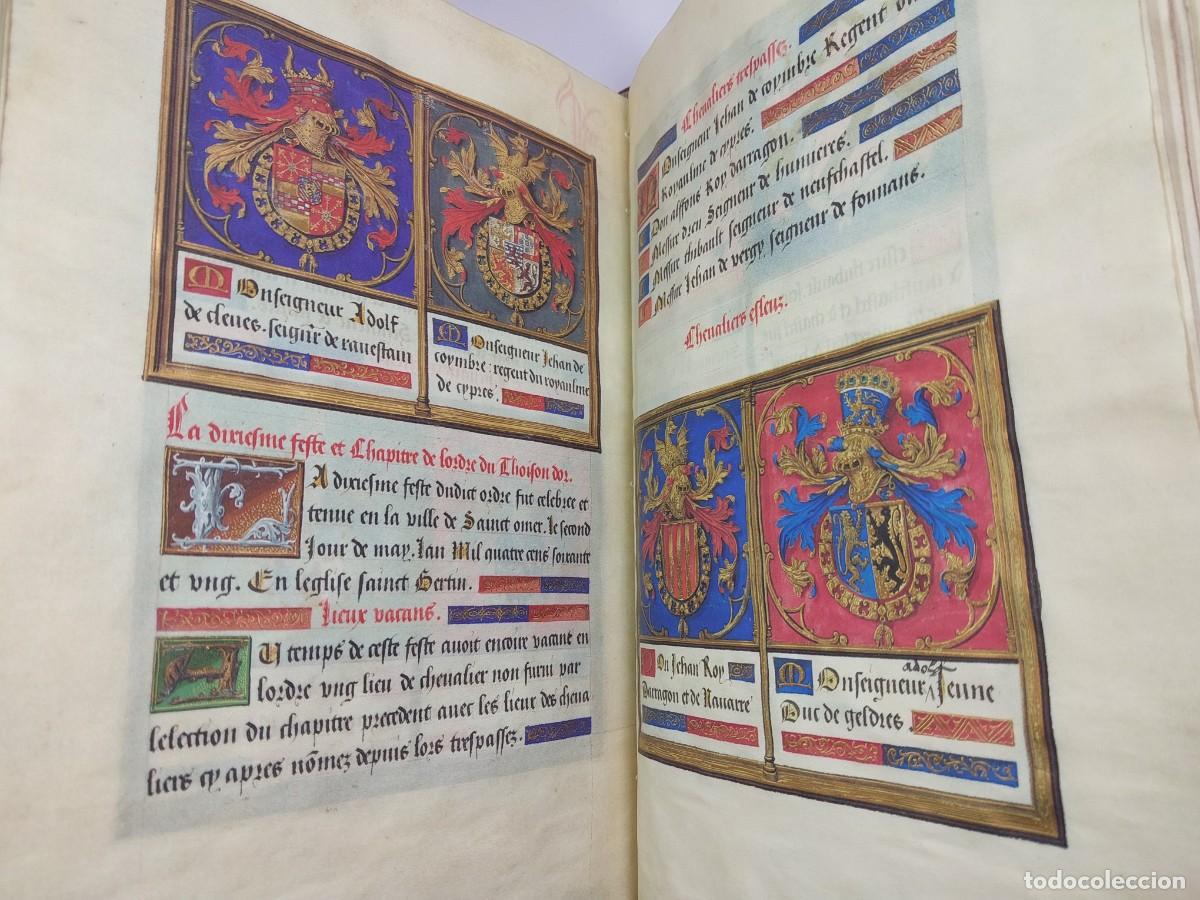 Monseigneur Adolf
de cleues. seignr de rauestain
Monseigneur Jehan de
coymbre. regent du royaulme
de cypres.
La dixiesme feste et Chapitre de lordre du Thoison dor.
LA dixiesme feste dudict ordre fut celebree et
tenue en la ville de Sainct omer. le second
Jour de may. lan Mil quatre cens soixante
et vng. En leglise sainct Bertin.
Lieux vacans.
AU temps de ceste feste auoit encore vacant en
lordre vng lieu de chevalier non furni par
lelection du chapitre precedent auec les lieux des cheua
liers cy apres nōmez depuis lors trespassez.
Chevaliers trespassez.
Monseigneur Jehan de coymbre Regent du
Royaulme de cypres.
Don alffons Roy darragon.
Messire drieu Seigneur de humieres.
Messire thibault seigneur de neufchastel.
Messire Jehan de vergy seigneur de founans.
Chevaliers esleuz.
Don Jehan Roy
Darragon et de Nauarre
adolf
Monseigneur Jeune
Duc de geldres.
todocoleccion